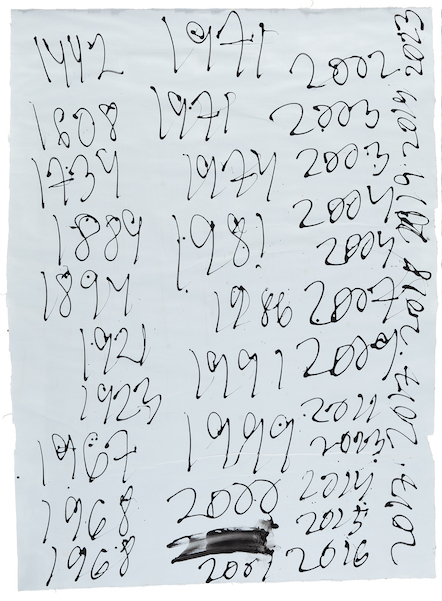 1442
1608
1734
1889
1894
1921
1923
1967
1968
1968
1971
1971
1974
1981
1986
1991
1999
2000
2001
2002
2003
2003
2004
2004
2007
2009
2011
2023
2014
2015
2016
2017. 2017. 2018 2019 2019. 2023